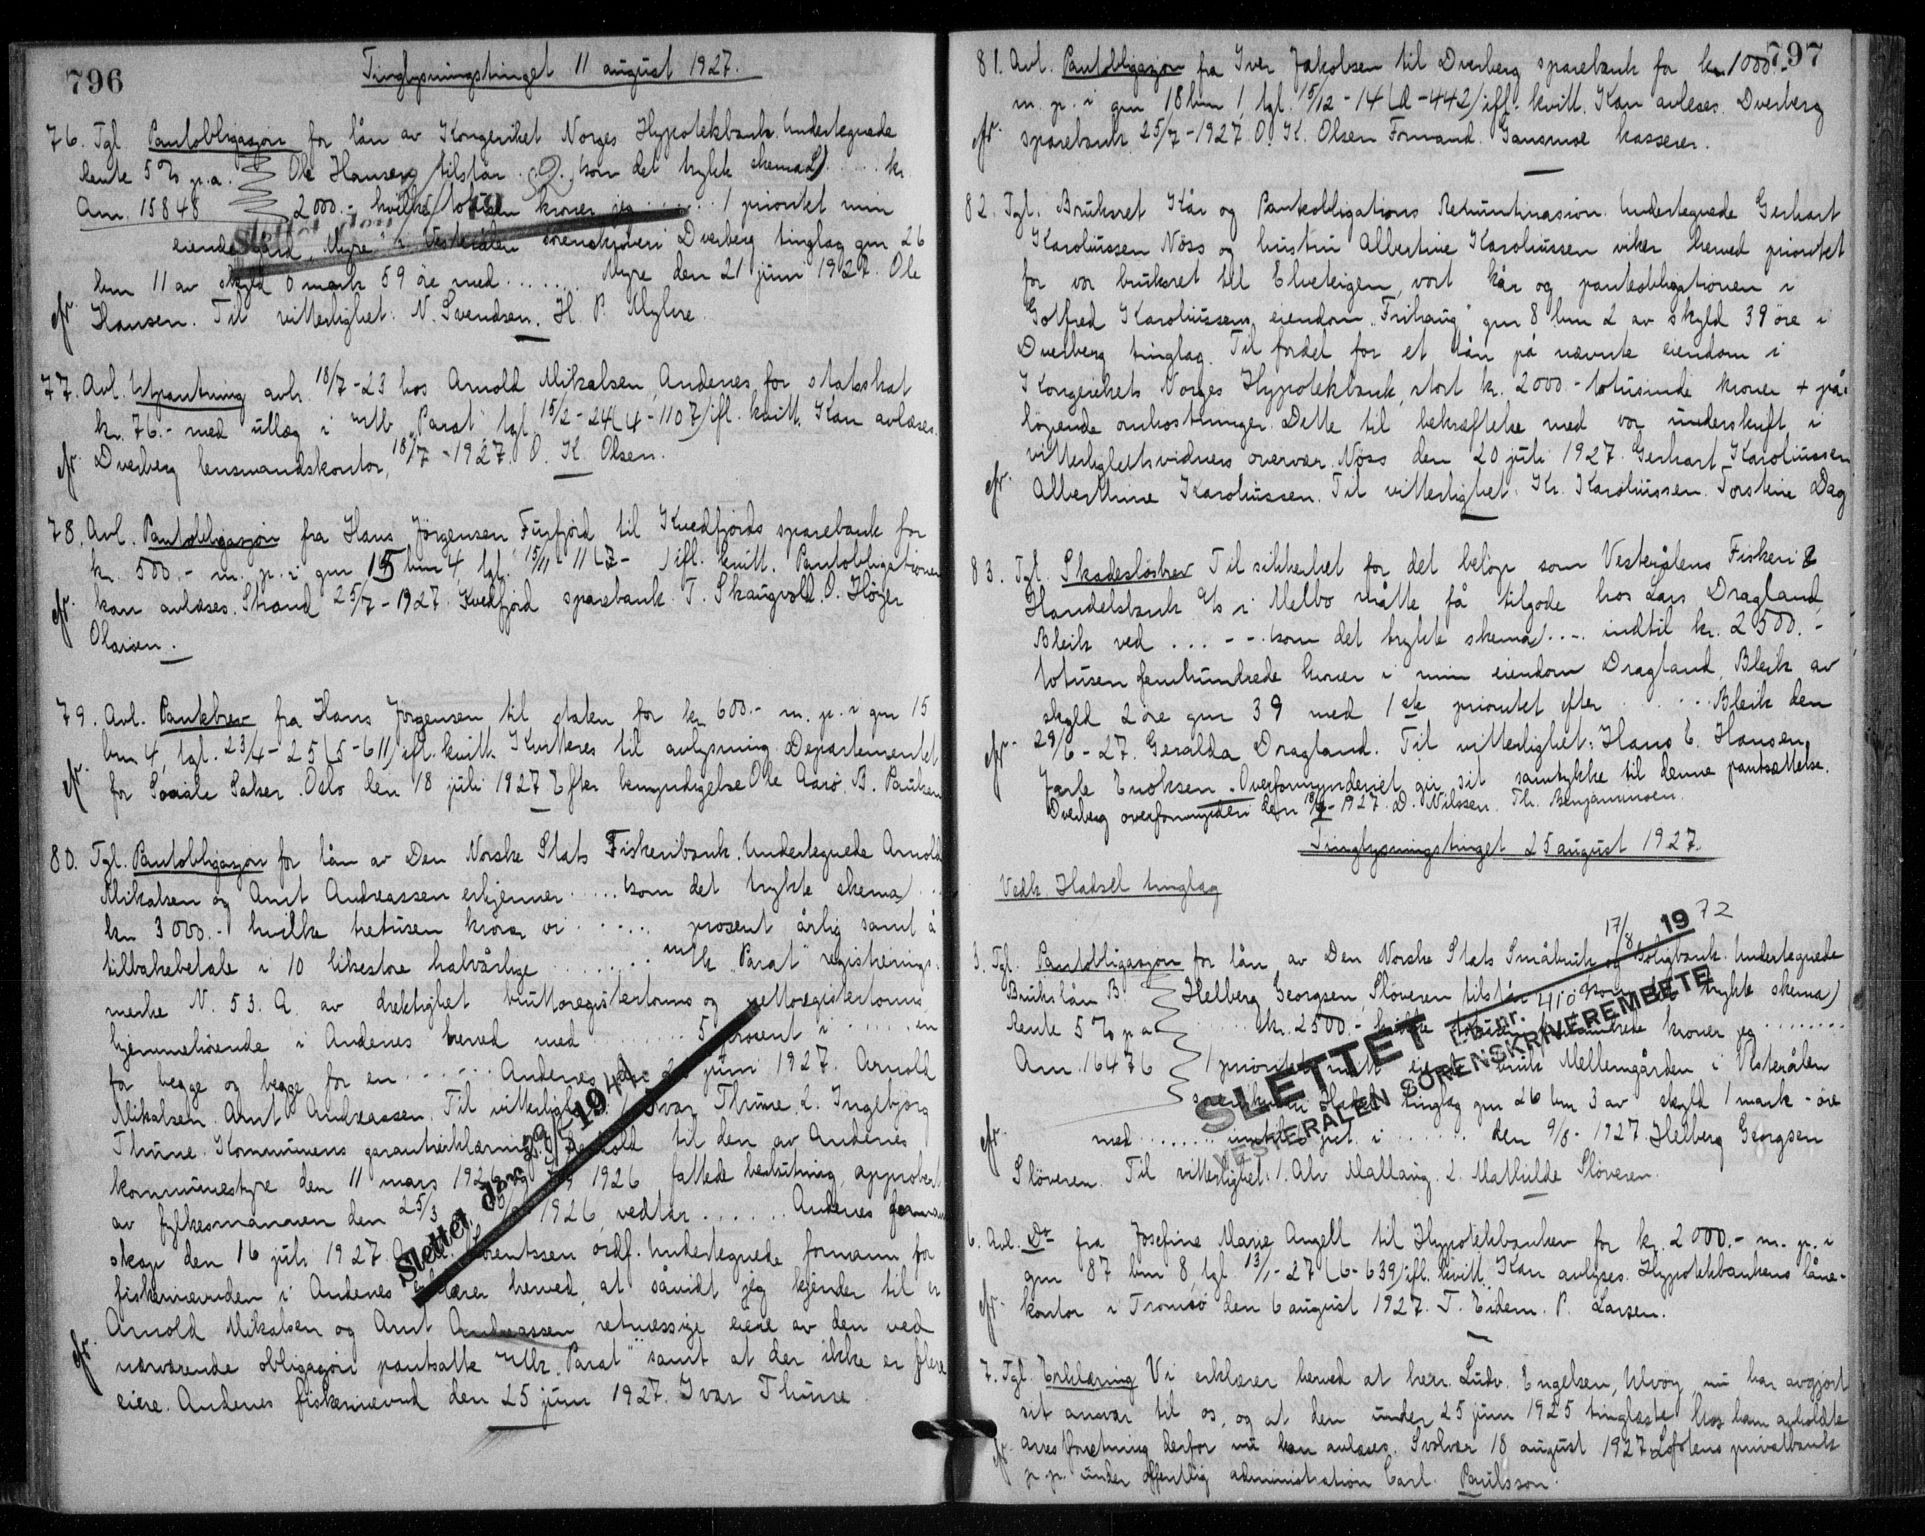 796
Tinglysningstinget 11 august 1927.
76. Tgl. Pantobligasjon for lån av Kongeriket Norges Hypotekbank. Undertegnede
Rente 5% p.a. Ole Hansen tilstår (som det trykte skema) .... kr.
Am. 15848 2000.- hvilke totusen kroner jeg ...... 1 prioritet min
Slettet den 19
eiende gård "Myre" i Vesterålen sorenskriveri Dverberg tinglag gnr 26
bnr 11 av skyld 0 mark 59 øre med ....... Myre den 21 juni 1927. Ole
Hansen. Til vitterlighet: N. Svendsen. H. P. Myhre.
77. Avl. Utpantning avh. 18/7-23 hos Arnold Mikalsen, Andenes, for statsskat
kr. 76.- med utlæg i m/k "Parat" tgl. 15/2-24 (4-1107) ifl. kvitt. Kan avlæses.
Dverberg lensmandskontor, 18/7-1927. O. K. Olsen.
78. Avl. Pantobligasjon fra Hans Jörgensen Furfjord til Kvedfjords sparebank for
kr. 500.- m. p. i gnr 15 bnr 4, tgl. 15/11-11 ifl. kvitt. Pantobligationen
kan avlæses. Strand 25/7-1927. Kvedfjord sparebank. T. Skaugvold. O. Höyer
Olaisen.
79. Avl. Pantebrev fra Hans Jörgensen til staten for kr. 600.- m. p. i gnr 15
bnr 4, tgl. 23/4-25 (5-611) ifl. kvitt. Kvitteres til avlysning. Departementet
for Sociale Saker. Oslo den 18 juli 1927. Efter bemyndigelse Ole Aarö. B. Paulsen
80. Tgl. Pantobligasjon for lån av Den Norske Stats Fiskeribank. Undertegnede Arnold
Mikalsen og Arnt Andreassen erkjenner ..... (som det trykte skema) ..
kr. 3000.- hvilke tretusen kroner vi ...... prosent årlig samt å
tilbakebetale i 10 likestore halvårlige ........ m/k "Parat" registerings-
merke N. 53. A. av drektighet bruttoregistertonns og nettoregistertonns
hjemmehörende i Andenes herred med ........ 5 procent i ...... en
for begge og begge for en ...... Andenes den 25 juni 1927. Arnold
Mikalsen. Arnt Andreassen. Til vitterlighet: Ivar Thune. 2. Ingebjörg
Thune. Kommunens garantierklæring: I henhold til den av Andenes
kommunestyre den 11 mars 1926 1926 fattede beslutning, approbert
av fylkesmannen den 25/3 1926, vedtar ...... Andenes formann-
Slettet den 29/5 1941
skap den 16 juli 1927. Lorentssen ordf. Undertegnede formann for
fiskernevnden i Andenes erklærer herved, at såvidt jeg kjender til er
Arnold Mikalsen og Arnt Andreassen retmessige eiere av den ved
nærværende obligasjon pantsatte m/k. "Parat" samt at der ikke er flere
eiere. Andenes fiskernevnd den 25 juni 1927. Ivar Thune.
797
81. Avl. Pantobligasjon fra Iver Jakobsen til Dverberg sparebank for kr. 1000.-
m. p. i gnr 18 bnr 1, tgl. 15/12-14 (2-442) ifl. kvitt. Kan avleses. Dverberg
sparebank 25/7-1927. O. K. Olsen Formand. Jansmoe kasserer.
82. Tgl. Bruksret Kår og Pantobligations Renuntiasion. Undertegnede Gerhart
Karoliussen Nöss og hustru Albertine Karoliussen viker herved prioritet
for vor bruksret til Elveteigen, vort kår og panteobligationen i
Gotfred Karoliussens eiendom "Frihaug" gnr 8 bnr 2 av skyld 39 øre i
Dverberg tinglag. Til fordel for et lån på nævnte eiendom i
Kongerikets Norges Hypotekbank, stort kr. 2000.- totusinde kroner + på-
löpende omkostninger. Dette til bekræftelse med vor underskrift i
vitterlighetsvidners overvær. Nöss den 20 juli 1927. Gerhart Karoliussen
Alberthine Karoliussen. Til vitterlighet: Kr. Karoliussen. Torstein Dag
83. Tgl. Skadeslösbrev Til sikkerhet for det belöp som Vesterålens Fiskeri &
Handelsbank A/s i Melbo måtte få tilgode hos Lars Dragland,
Bleik ved ...... (som det trykte skema) .... indtil kr. 2500.-
totusen femhundrede kroner i min eiendom Dragland, Bleik av
skyld 2 øre gnr 39 med 1ste prioritet efter ...... Bleik den
29/6-27. Geralda Dragland. Til vitterlighet: Hans E. Hansen,
Jarle Enoksen. Overformynderiet gir sit samtykke til denne pantsættelse.
Dverberg overformynderi den 18/7-1927. D. Nilssen. Th. Benjaminsen.
Tinglysningstinget 25 august 1927.
Vedk. Hadsel tinglag
17/8 1972
3. Tgl. Pantobligasjon for lån av Den Norske Stats Småbruk og Boligbank. Undertegnede
Brukslån B. Helberg Georgsen, Slöveren tilstår (som det trykte skema)
Rente 5% p.a. kr. 2500.- hvilke totusen femhundrede kroner jeg ........
Am. 16476 1 prioritet mitt eiende bruk Mellemgården i Vesterålen
SLETTET
L.b. nr. 410
VESTERÅLEN SORENSKRIVEREMBETE
sorenskriveri Hadsel tinglag gnr 26 bnr 3 av skyld 1 mark - øre
med ........ inntatt i ....... den 9/8-1927. Helberg Georgsen
Slöveren. Til vitterlighet: 1. Alv Mallaug. 2. Mathilde Slöveren.
6. Avl. Do fra Josefine Marie Angell til Hypotekbanken for kr. 2000.- m. p. i
gnr 87 bnr 8, tgl. 13/1-27 (6-639) ifl. kvitt. Kan avlyses. Hypotekbankens låne-
kontor i Tromsö den 6 august 1927. T. Eidem. P. Larsen.
7. Tgl. Erklæring Vi erklærer herved at herr. Ludv. Engelsen, Ulvöy nu har avgjort
sit ansvar til os, og at den under 25 juni 1925 tinglæste hos ham avholdte
arrestforretning derfor nu kan avlæses. Svolvær 18 august 1927. Lofotens privatbank
p.p. under offentlig administration Carl. Paulsson.